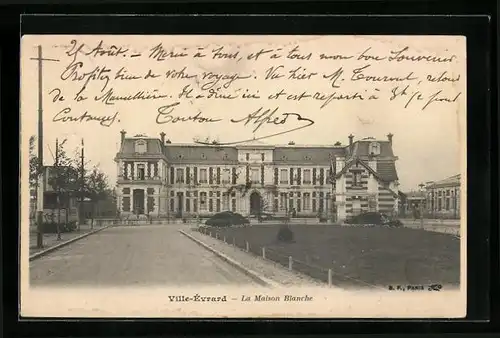 21 Août - Merci à tous, et à tous mon bon Souvenir.
Profitez bien de votre voyage. Vu hier M. Tourial, retour
de la Marseillère. Il a dîné ici et est reparti à 8h ½ pour
Coutances. Toutou Alfred
Ville-Evrard - La Maison Blanche
B. F., PARIS